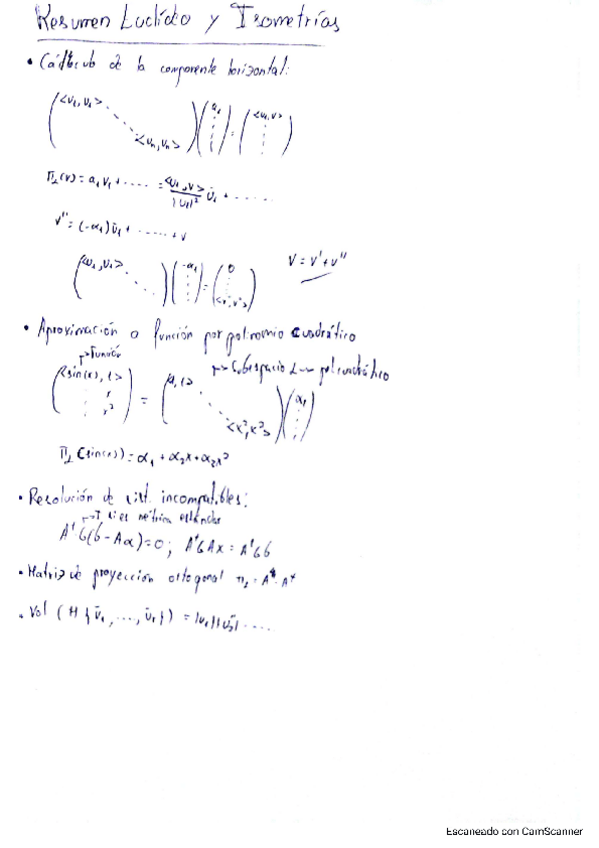 Resumen Euclídeo y Isometrías
• Cálculo de la componente horizontal:
(<v₁,v₁> ⋱ <vₙ,vₙ>)(a₁ ⋮) = (<v₁,v> ⋮)
π₂(v) = a₁v₁ + ···· = <v₁,v>/|v₁|² v̄₁ + ······
v'' = (-α₁)v̄₁ + ······ + v
(<v₁,v₁> ⋱)(-α₁ ⋮) = (0 ⋮ <v'',v''>) V = v' + v''
• Aproximación a función por polinomio cuadrático
→ Función
→ Subespacio polcuadrático
(<sin(x),1> ⋮ x x²) = (<1,1> ⋱ <x²,x²>)(α₁ ⋮)
π₂(sin(x)) = α₁ + α₂x + α₃x²
• Resolución de sist. incompatibles:
→ I si es métrica estándar
AᵗG(b-Aα)=0; AᵗGAx = AᵗGb
• Matriz de proyección ortogonal π₂ = A·A⁺
• Vol (H {v̄₁, ..., v̄ᵣ}) = |v₁||v₂''| ·····
Escaneado con CamScanner